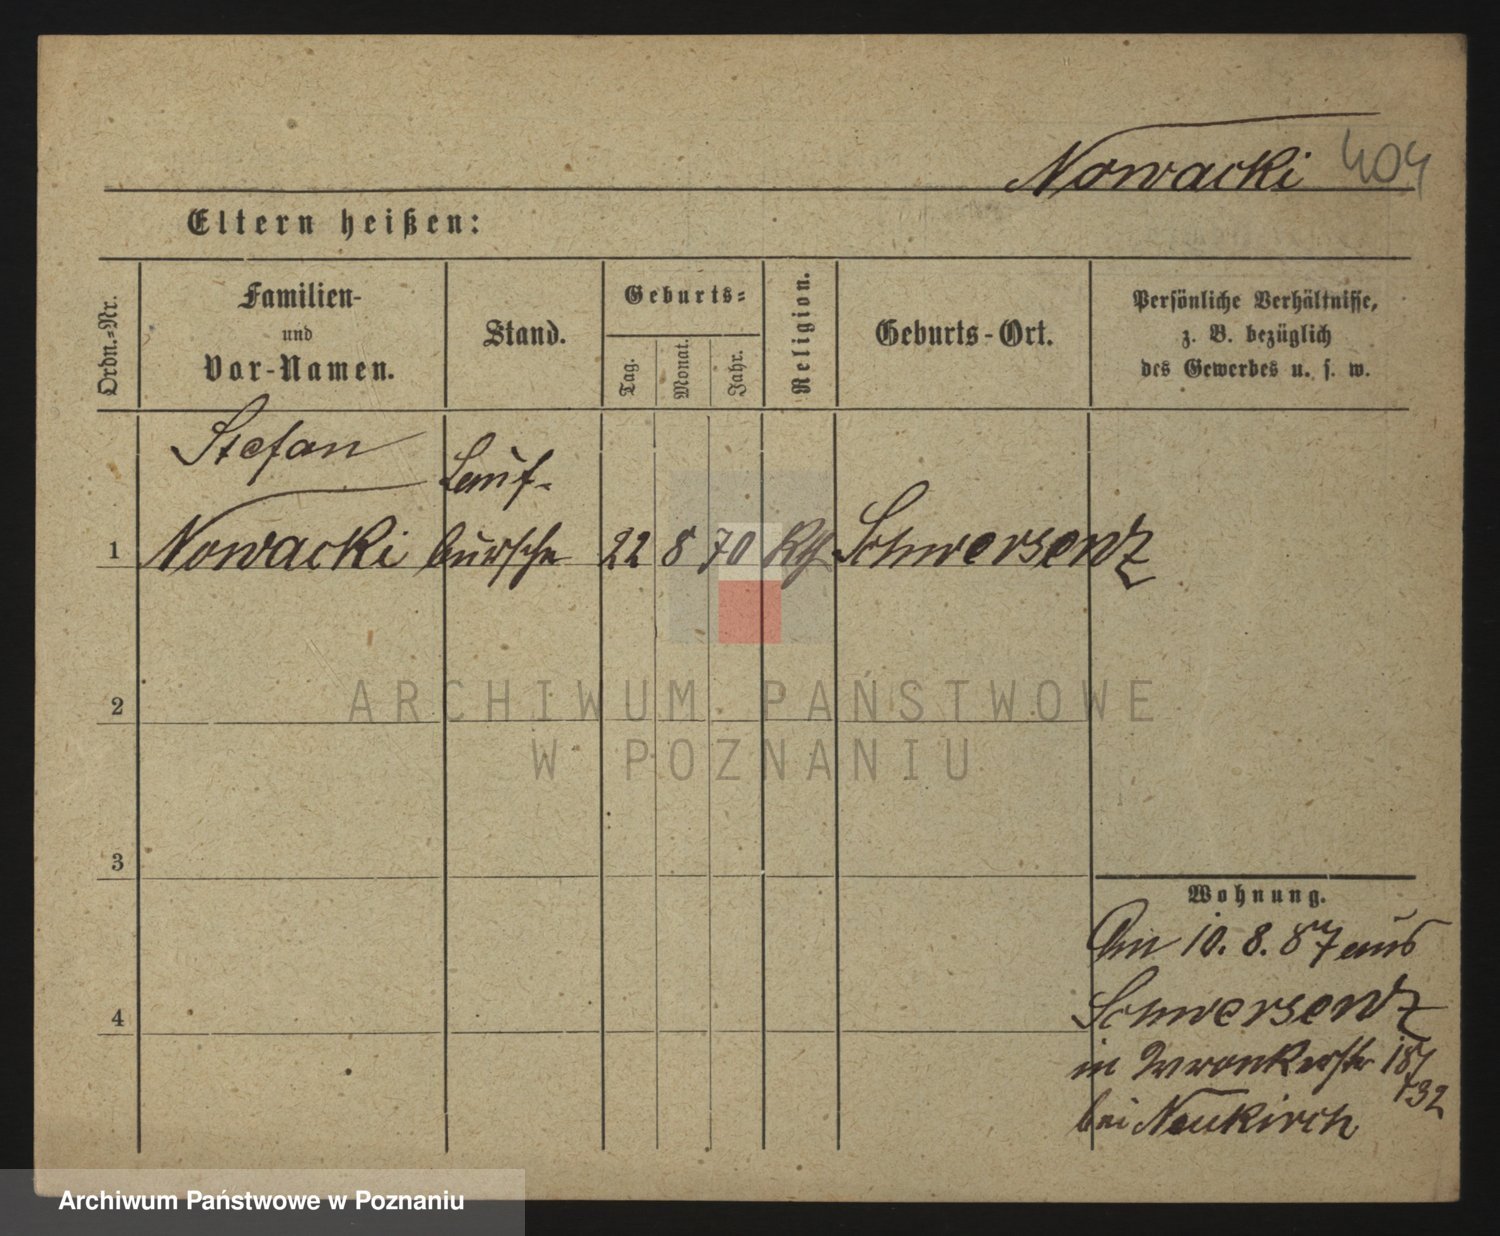 Nowacki 404
Eltern heißen:
Ordn.-Nr.
Familien-
und
Vor-Namen.
Stand.
Geburts-
Tag.
Monat.
Jahr.
Religion.
Geburts-Ort.
Persönliche Verhältnisse,
z. B. bezüglich
des Gewerbes u. s. w.
Stefan
Lauf-
1 Nowacki bursche 22 8 70 Schwersenz
2
3
4
Wohnung.
Am 10. 8. 87 aus
Schwersenz
in Wronkerstr
bei Neukirch
ARCHIWUM PAŃSTWOWE
W POZNANIU
Archiwum Państwowe w Poznaniu